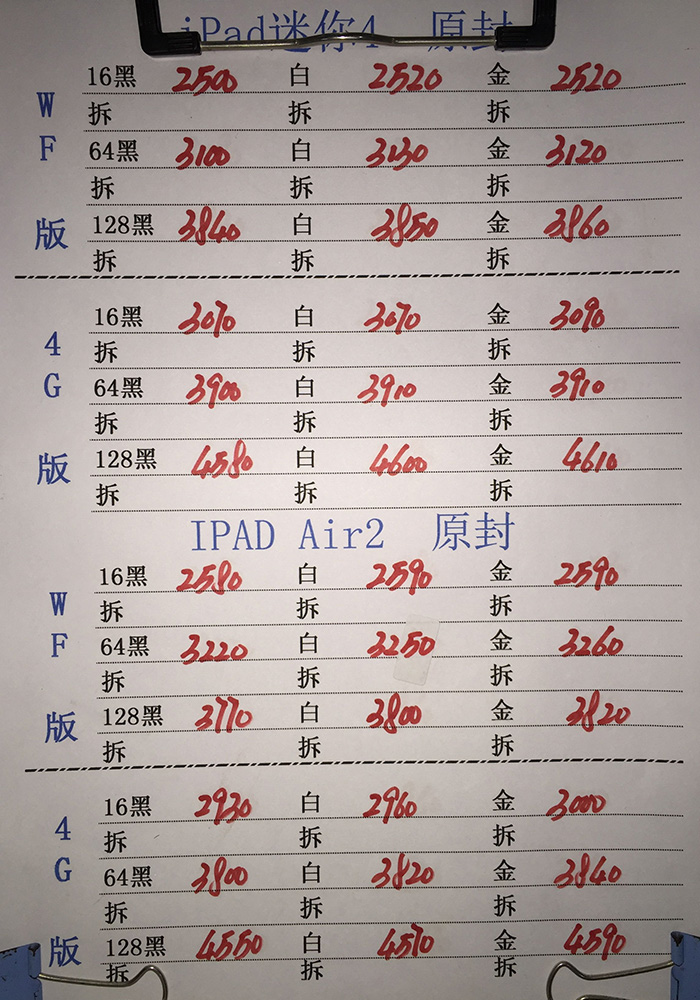 iPad迷你4 原封
16黑 2500 白 2520 金 2520
W 拆 拆 拆
F 64黑 3100 白 3130 金 3120
拆 拆 拆
版 128黑 3840 白 3850 金 3860
拆 拆 拆
16黑 3070 白 3070 金 3090
4 拆 拆 拆
G 64黑 3900 白 3910 金 3910
拆 拆 拆
版 128黑 4580 白 4600 金 4610
拆 拆 拆
IPAD Air2 原封
16黑 2580 白 2590 金 2590
W 拆 拆 拆
F 64黑 3220 白 3250 金 3260
拆 拆 拆
版 128黑 3770 白 3800 金 3820
拆 拆 拆
16黑 2930 白 2960 金 3000
4 拆 拆 拆
G 64黑 3800 白 3820 金 3840
拆 拆 拆
版 128黑 4550 白 4570 金 4590
拆 拆 拆